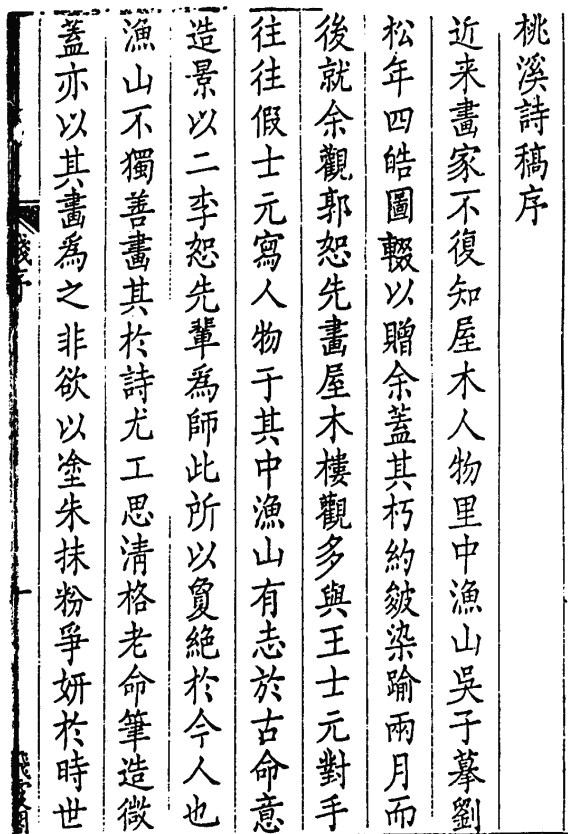 桃溪詩稿序
近来畫家不復知屋木人物里中漁山吳子摹劉
松年四皓圖輟以贈余蓋其朽約皴染踰兩月而
後就余觀郭恕先畫屋木樓觀多與王士元對手
往往假士元寫人物于其中漁山有志於古命意
造景以二李恕先輩爲師此所以敻絶於今人也
漁山不獨善畫其於詩尤工思淸格老命筆造微
蓋亦以其畫爲之非欲以塗朱抹粉爭妍於時世